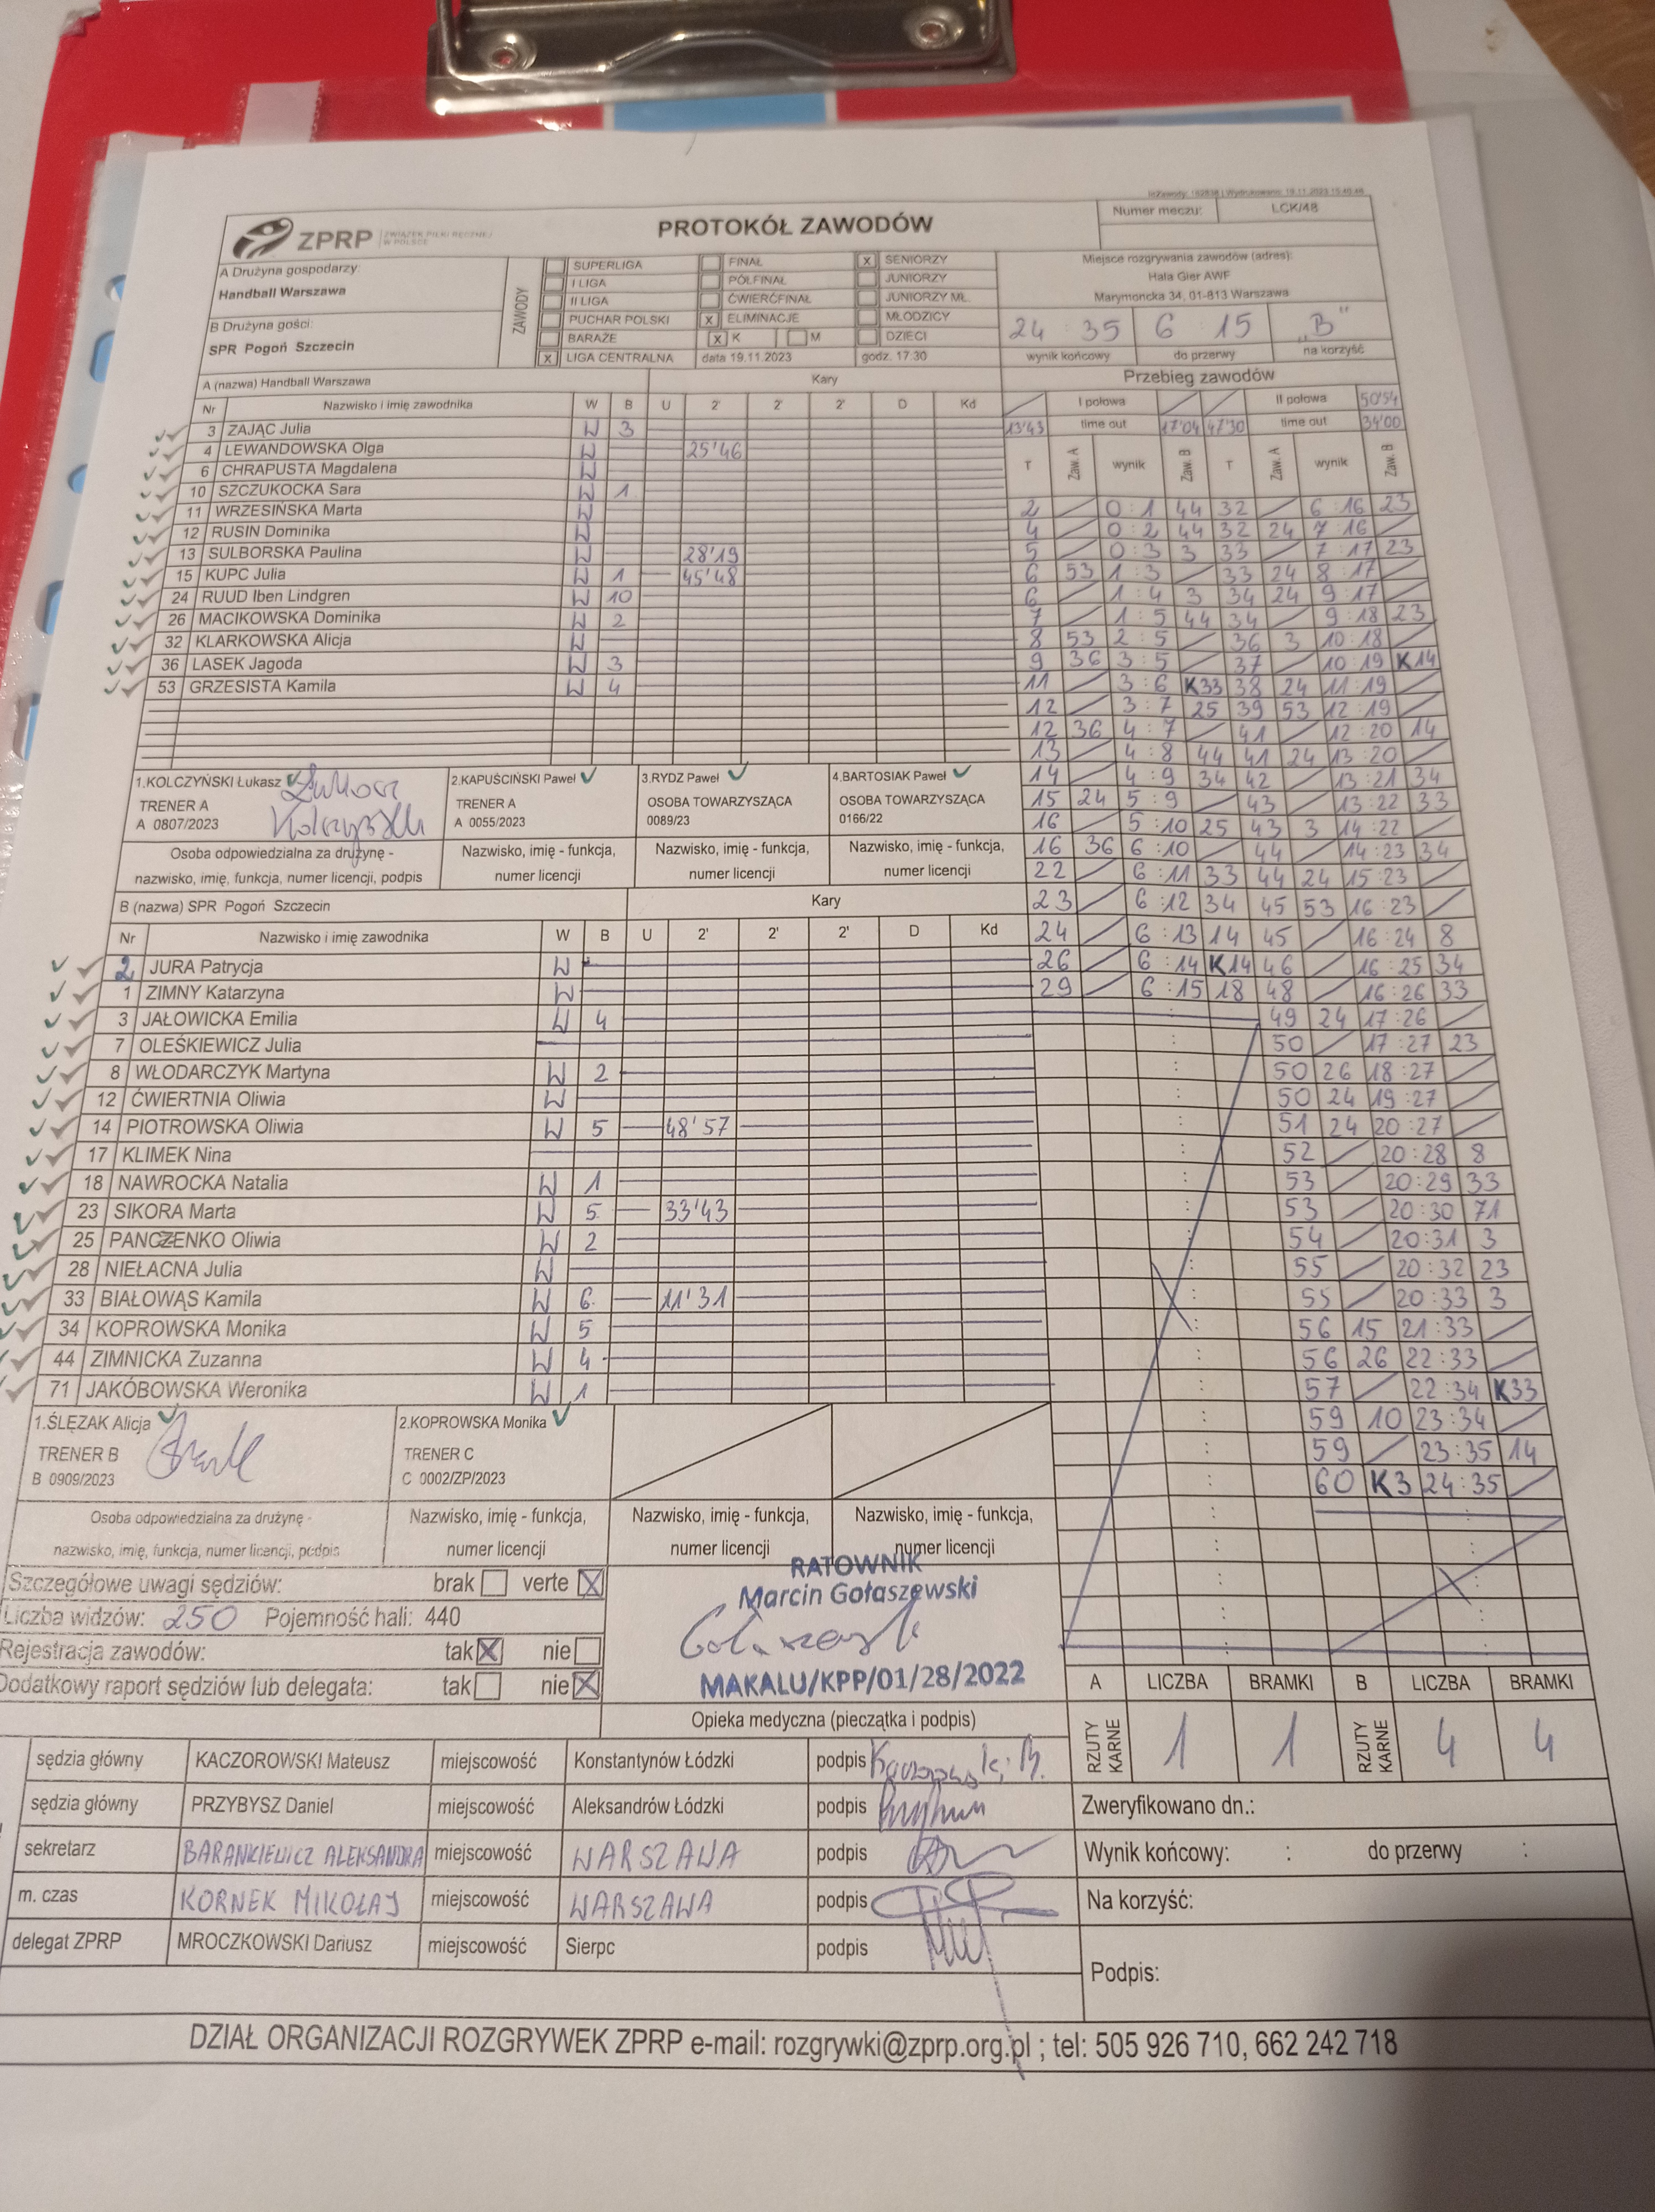 IdZawody: 162838 | Wydrukowano: 19.11.2023 15:40:48
ZPRP ZWIĄZEK PIŁKI RĘCZNEJ W POLSCE
PROTOKÓŁ ZAWODÓW
Numer meczu: LCK/48
A Drużyna gospodarzy:
Handball Warszawa
B Drużyna gości:
SPR Pogoń Szczecin
ZAWODY
SUPERLIGA FINAŁ x SENIORZY
I LIGA PÓŁFINAŁ JUNIORZY
II LIGA ĆWIERĆFINAŁ JUNIORZY MŁ.
PUCHAR POLSKI x ELIMINACJE MŁODZICY
BARAŻE x K M DZIECI
x LIGA CENTRALNA data 19.11.2023 godz. 17:30
Miejsce rozgrywania zawodów (adres):
Hala Gier AWF
Marymoncka 34, 01-813 Warszawa
24 : 35 6 : 15 "B"
wynik końcowy do przerwy na korzyść
A (nazwa) Handball Warszawa Kary
Nr Nazwisko i imię zawodnika W B U 2' 2' 2' D Kd
3 ZAJĄC Julia W 3
4 LEWANDOWSKA Olga W 25'46
6 CHRAPUSTA Magdalena W
10 SZCZUKOCKA Sara W 1
11 WRZESIŃSKA Marta W
12 RUSIN Dominika W
13 SULBORSKA Paulina W 28'19
15 KUPC Julia W 1 45'48
24 RUUD Iben Lindgren W 10
26 MACIKOWSKA Dominika W 2
32 KLARKOWSKA Alicja W
36 LASEK Jagoda W 3
53 GRZESISTA Kamila W 4
1.KOLCZYŃSKI Łukasz 2.KAPUŚCIŃSKI Paweł 3.RYDZ Paweł 4.BARTOSIAK Paweł
TRENER A TRENER A OSOBA TOWARZYSZĄCA OSOBA TOWARZYSZĄCA
A 0807/2023 A 0055/2023 0089/23 0166/22
Łukasz
Kolczyński
Osoba odpowiedzialna za drużynę - Nazwisko, imię - funkcja, Nazwisko, imię - funkcja, Nazwisko, imię - funkcja,
nazwisko, imię, funkcja, numer licencji, podpis numer licencji numer licencji numer licencji
B (nazwa) SPR Pogoń Szczecin Kary
Nr Nazwisko i imię zawodnika W B U 2' 2' 2' D Kd
2 JURA Patrycja W
1 ZIMNY Katarzyna W
3 JAŁOWICKA Emilia W 4
7 OLEŚKIEWICZ Julia
8 WŁODARCZYK Martyna W 2
12 ĆWIERTNIA Oliwia W
14 PIOTROWSKA Oliwia W 5 48'57
17 KLIMEK Nina
18 NAWROCKA Natalia W 1
23 SIKORA Marta W 5 33'43
25 PANCZENKO Oliwia W 2
28 NIEŁACNA Julia W
33 BIAŁOWĄS Kamila W 6 11'31
34 KOPROWSKA Monika W 5
44 ZIMNICKA Zuzanna W 4
71 JAKÓBOWSKA Weronika W 1
1.ŚLĘZAK Alicja 2.KOPROWSKA Monika
TRENER B TRENER C
B 0909/2023 C 0002/ZP/2023
Osoba odpowiedzialna za drużynę - Nazwisko, imię - funkcja, Nazwisko, imię - funkcja, Nazwisko, imię - funkcja,
nazwisko, imię, funkcja, numer licencji, podpis numer licencji numer licencji numer licencji
Przebieg zawodów
I połowa II połowa 50'54
13'43 time out 17'04 47'30 time out 34'00
T Zaw. A wynik Zaw. B T Zaw. A wynik Zaw. B
2 0 : 1 44 32 6 : 16 23
4 0 : 2 44 32 24 7 : 16
5 0 : 3 3 33 7 : 17 23
6 53 1 : 3 33 24 8 : 17
6 1 : 4 3 34 24 9 : 17
7 1 : 5 44 34 9 : 18 23
8 53 2 : 5 36 3 10 : 18
9 36 3 : 5 37 10 : 19 K14
11 3 : 6 K33 38 24 11 : 19
12 3 : 7 25 39 53 12 : 19
12 36 4 : 7 41 12 : 20 14
13 4 : 8 44 41 24 13 : 20
14 4 : 9 34 42 13 : 21 34
15 24 5 : 9 43 13 : 22 33
16 5 : 10 25 43 3 14 : 22
16 36 6 : 10 44 14 : 23 34
22 6 : 11 33 44 24 15 : 23
23 6 : 12 34 45 53 16 : 23
24 6 : 13 14 45 16 : 24 8
26 6 : 14 K14 46 16 : 25 34
29 6 : 15 18 48 16 : 26 33
49 24 17 : 26
50 17 : 27 23
50 26 18 : 27
50 24 19 : 27
51 24 20 : 27
52 20 : 28 8
53 20 : 29 33
53 20 : 30 71
54 20 : 31 3
55 20 : 32 23
55 20 : 33 3
56 15 21 : 33
56 26 22 : 33
57 22 : 34 K33
59 10 23 : 34
59 23 : 35 14
60 K3 24 : 35
Szczegółowe uwagi sędziów: brak verte X
Liczba widzów: 250 Pojemność hali: 440
Rejestracja zawodów: tak X nie
Dodatkowy raport sędziów lub delegata: tak nie X
RATOWNIK
Marcin Gołaszewski
MAKALU/KPP/01/28/2022
Opieka medyczna (pieczątka i podpis)
A LICZBA BRAMKI B LICZBA BRAMKI
RZUTY KARNE 1 1 RZUTY KARNE 4 4
sędzia główny KACZOROWSKI Mateusz miejscowość Konstantynów Łódzki podpis
sędzia główny PRZYBYSZ Daniel miejscowość Aleksandrów Łódzki podpis
sekretarz BARANKIEWICZ ALEKSANDRA miejscowość WARSZAWA podpis
m. czas KORNEK MIKOŁAJ miejscowość WARSZAWA podpis
delegat ZPRP MROCZKOWSKI Dariusz miejscowość Sierpc podpis
Zweryfikowano dn.:
Wynik końcowy: : do przerwy :
Na korzyść:
Podpis:
DZIAŁ ORGANIZACJI ROZGRYWEK ZPRP e-mail: rozgrywki@zprp.org.pl ; tel: 505 926 710, 662 242 718